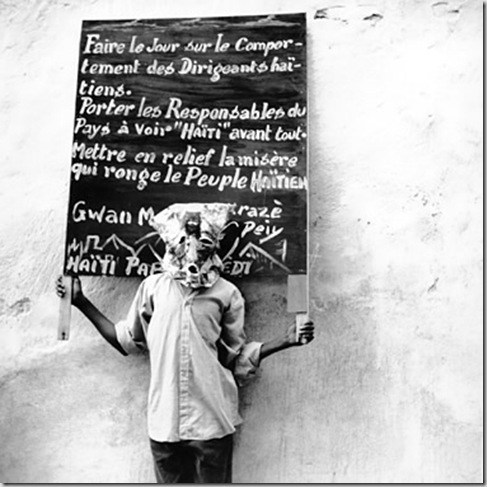 Faire le Jour sur le Compor-
tement des Dirigeants haï-
tiens.
Porter les Responsables du
Pays à voir "HAÏTI" avant tout.
Mettre en relief la misère
qui ronge le Peuple HAÏTIEN
Gwan krazè
Peiy
HAÏTI